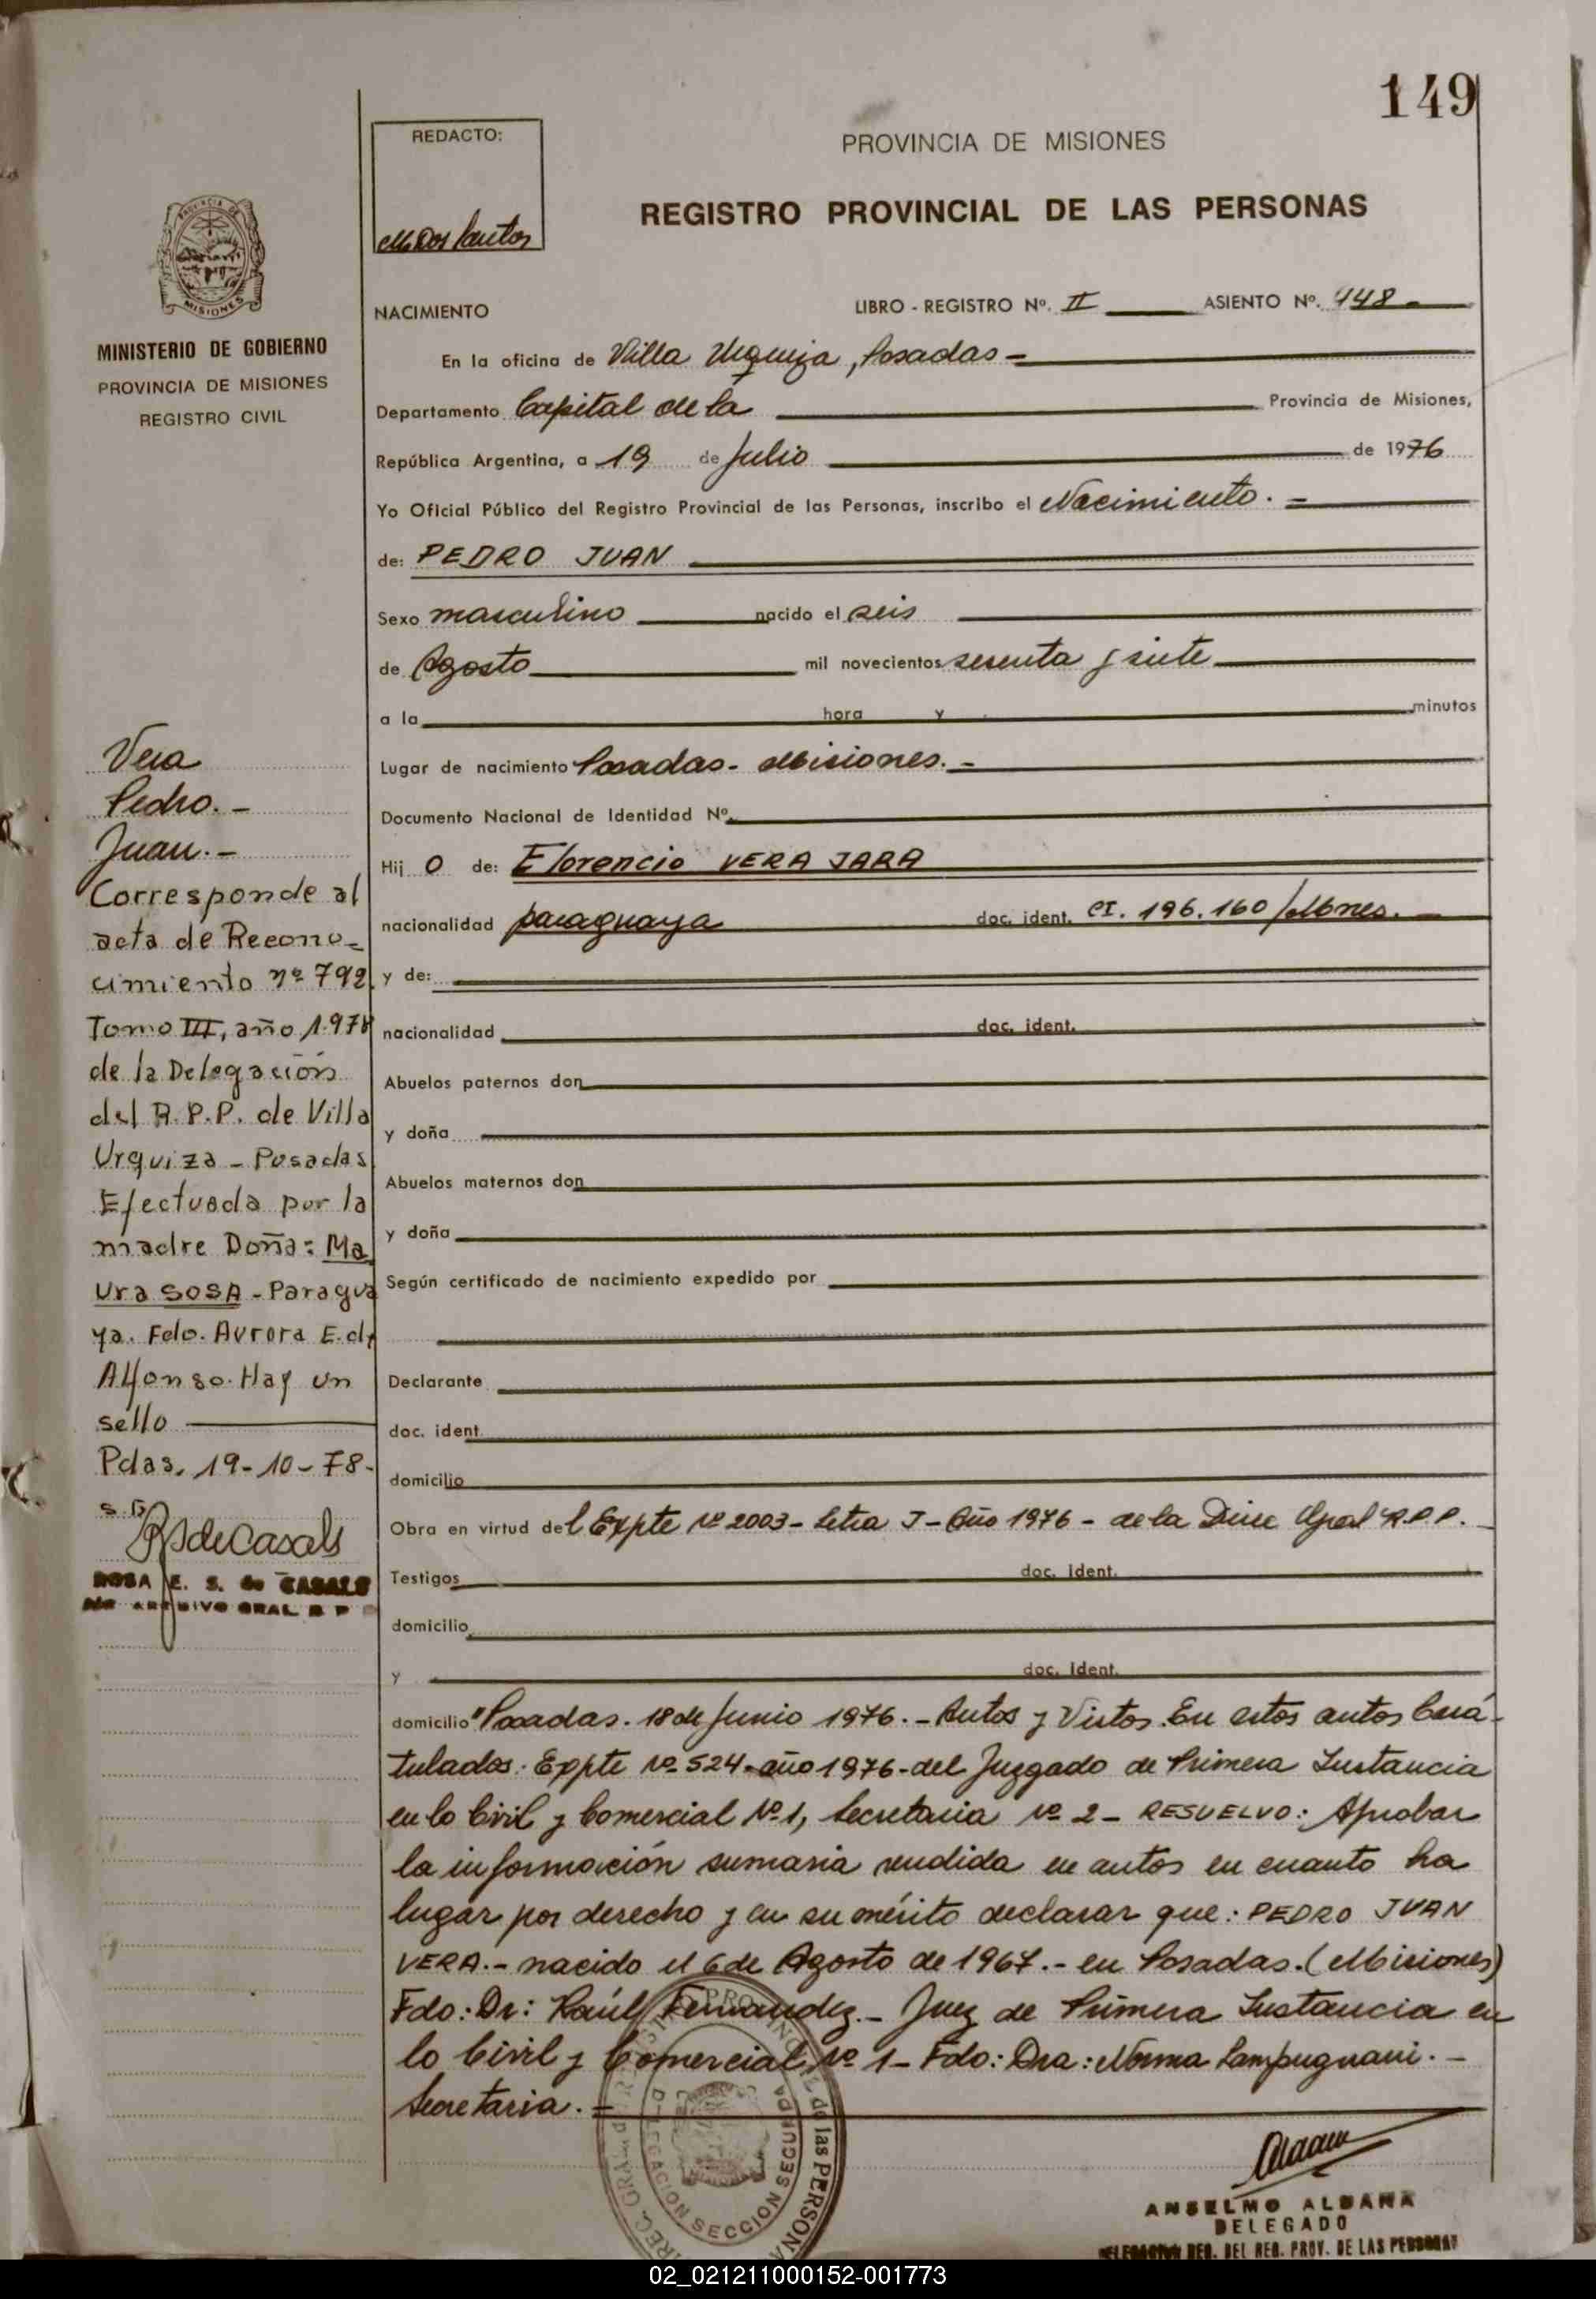 149
REDACTO:
M Dos Santos
PROVINCIA DE MISIONES
REGISTRO PROVINCIAL DE LAS PERSONAS
MISIONES
MINISTERIO DE GOBIERNO
PROVINCIA DE MISIONES
REGISTRO CIVIL
NACIMIENTO LIBRO - REGISTRO Nº. II ASIENTO Nº. 448 -
En la oficina de Villa Urquiza, Posadas =
Departamento Capital de la Provincia de Misiones,
República Argentina, a 19 de Julio de 1976
Yo Oficial Público del Registro Provincial de las Personas, inscribo el Nacimiento. =
de: PEDRO JUAN
Sexo masculino nacido el seis
de Agosto mil novecientos sesenta y siete
a la hora y minutos
Lugar de nacimiento Posadas - Misiones. -
Documento Nacional de Identidad Nº
Hij o de: Florencio VERA JARA
nacionalidad paraguaya doc. ident. CI. 196.160/Mnes.
y de:
nacionalidad doc. ident.
Abuelos paternos don
y doña
Abuelos maternos don
y doña
Según certificado de nacimiento expedido por
Declarante
doc. ident
domicilio
Obra en virtud del Expte Nº 2003 - Letra J - Año 1976 - de la Direc Gral R.P.P.
Testigos doc. ident.
domicilio
y doc. ident.
domicilio "Posadas. 18 de Junio 1976. - Autos y Vistos. En estos autos Cará-
tulados. Expte Nº 524 - año 1976 - del Juzgado de Primera Instancia
en lo Civil y Comercial Nº 1, Secretaria Nº 2 - RESUELVO: Aprobar
la información sumaria rendida en autos en cuanto ha
lugar por derecho y en su mérito declarar que: PEDRO JUAN
VERA. - nacido el 6 de Agosto de 1967. - en Posadas. (Misiones)
Fdo: Dr: Raúl Fernandez - Juez de Primera Instancia en
lo Civil y Comercial Nº 1 - Fdo: Dra: Norma Lampugnani. -
Secretaria. =
Vera
Pedro. -
Juan. -
Corresponde al
acta de Recono-
cimiento nº 792
Tomo III, año 1.978
de la Delegación
del R.P.P. de Villa
Urquiza - Posadas
Efectuada por la
madre Doña: Ma
ura SOSA - Paragua
ya. Fdo. Aurora E. de
Alfonso. Hay un
sello
Pdas, 19-10-78-
RSdeCasals
ROSA E. S. de CASALS
ARCHIVO GRAL R P P
DELEGACION SECCION SEGUNDA
de las PERSONA
ANSELMO ALDANA
DELEGADO
DEL REG. PROV. DE LAS PERSONAS
02_021211000152-001773